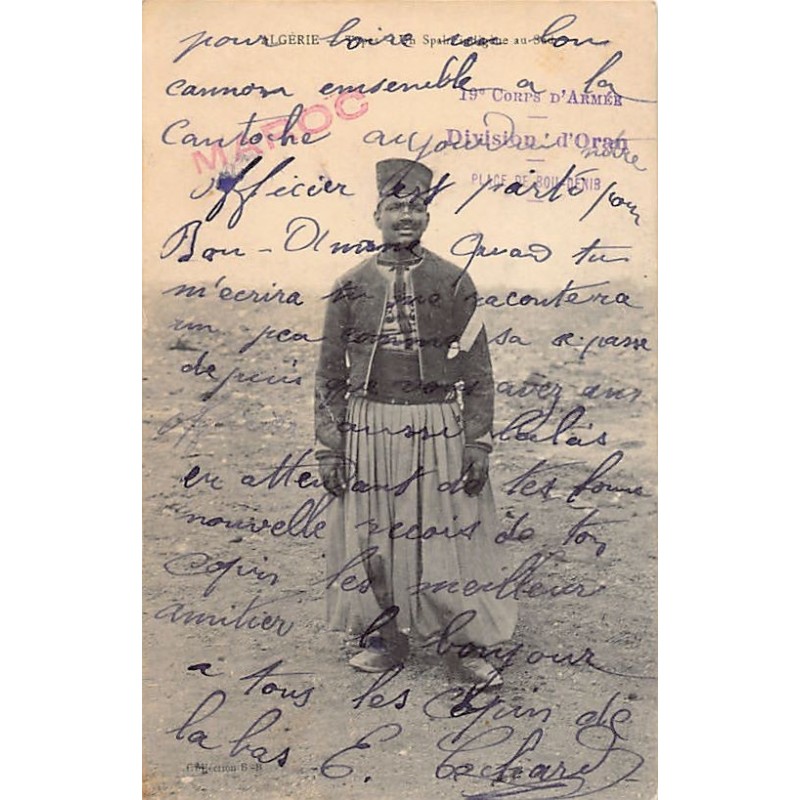 ALGÉRIE — Un Spahi indigène au Sud
MAROC
19e CORPS D'ARMÉE
Division d'Oran
PLACE DE BOU-DENIB
pour boire un bon
cannon emsenble a la
Cantoche aujourdui notre
officier est parti pour
Bou-Dmane Quand tu
m'ecrira tu me racontera
un peu comme sa se passe
depuis que vous avez ans
aussi labas
en attendant de tes bonne
nouvelle recois de ton
Copin les meilleur
amitier le bonjour
a tous les Copin de
la bas E.
Collection B-B